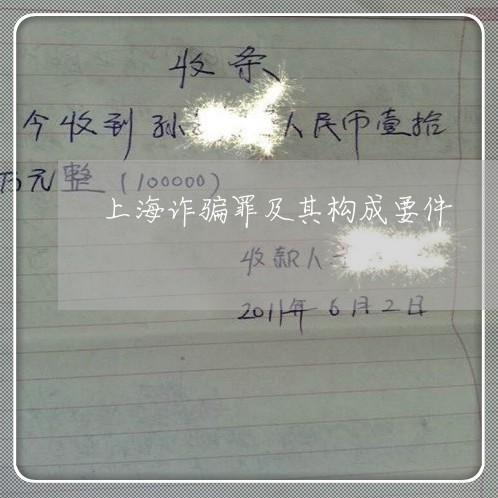 收条
今收到孙 人民币壹拾
万元整(100000)
上海诈骗罪及其构成要件
收款人
2011年6月2日